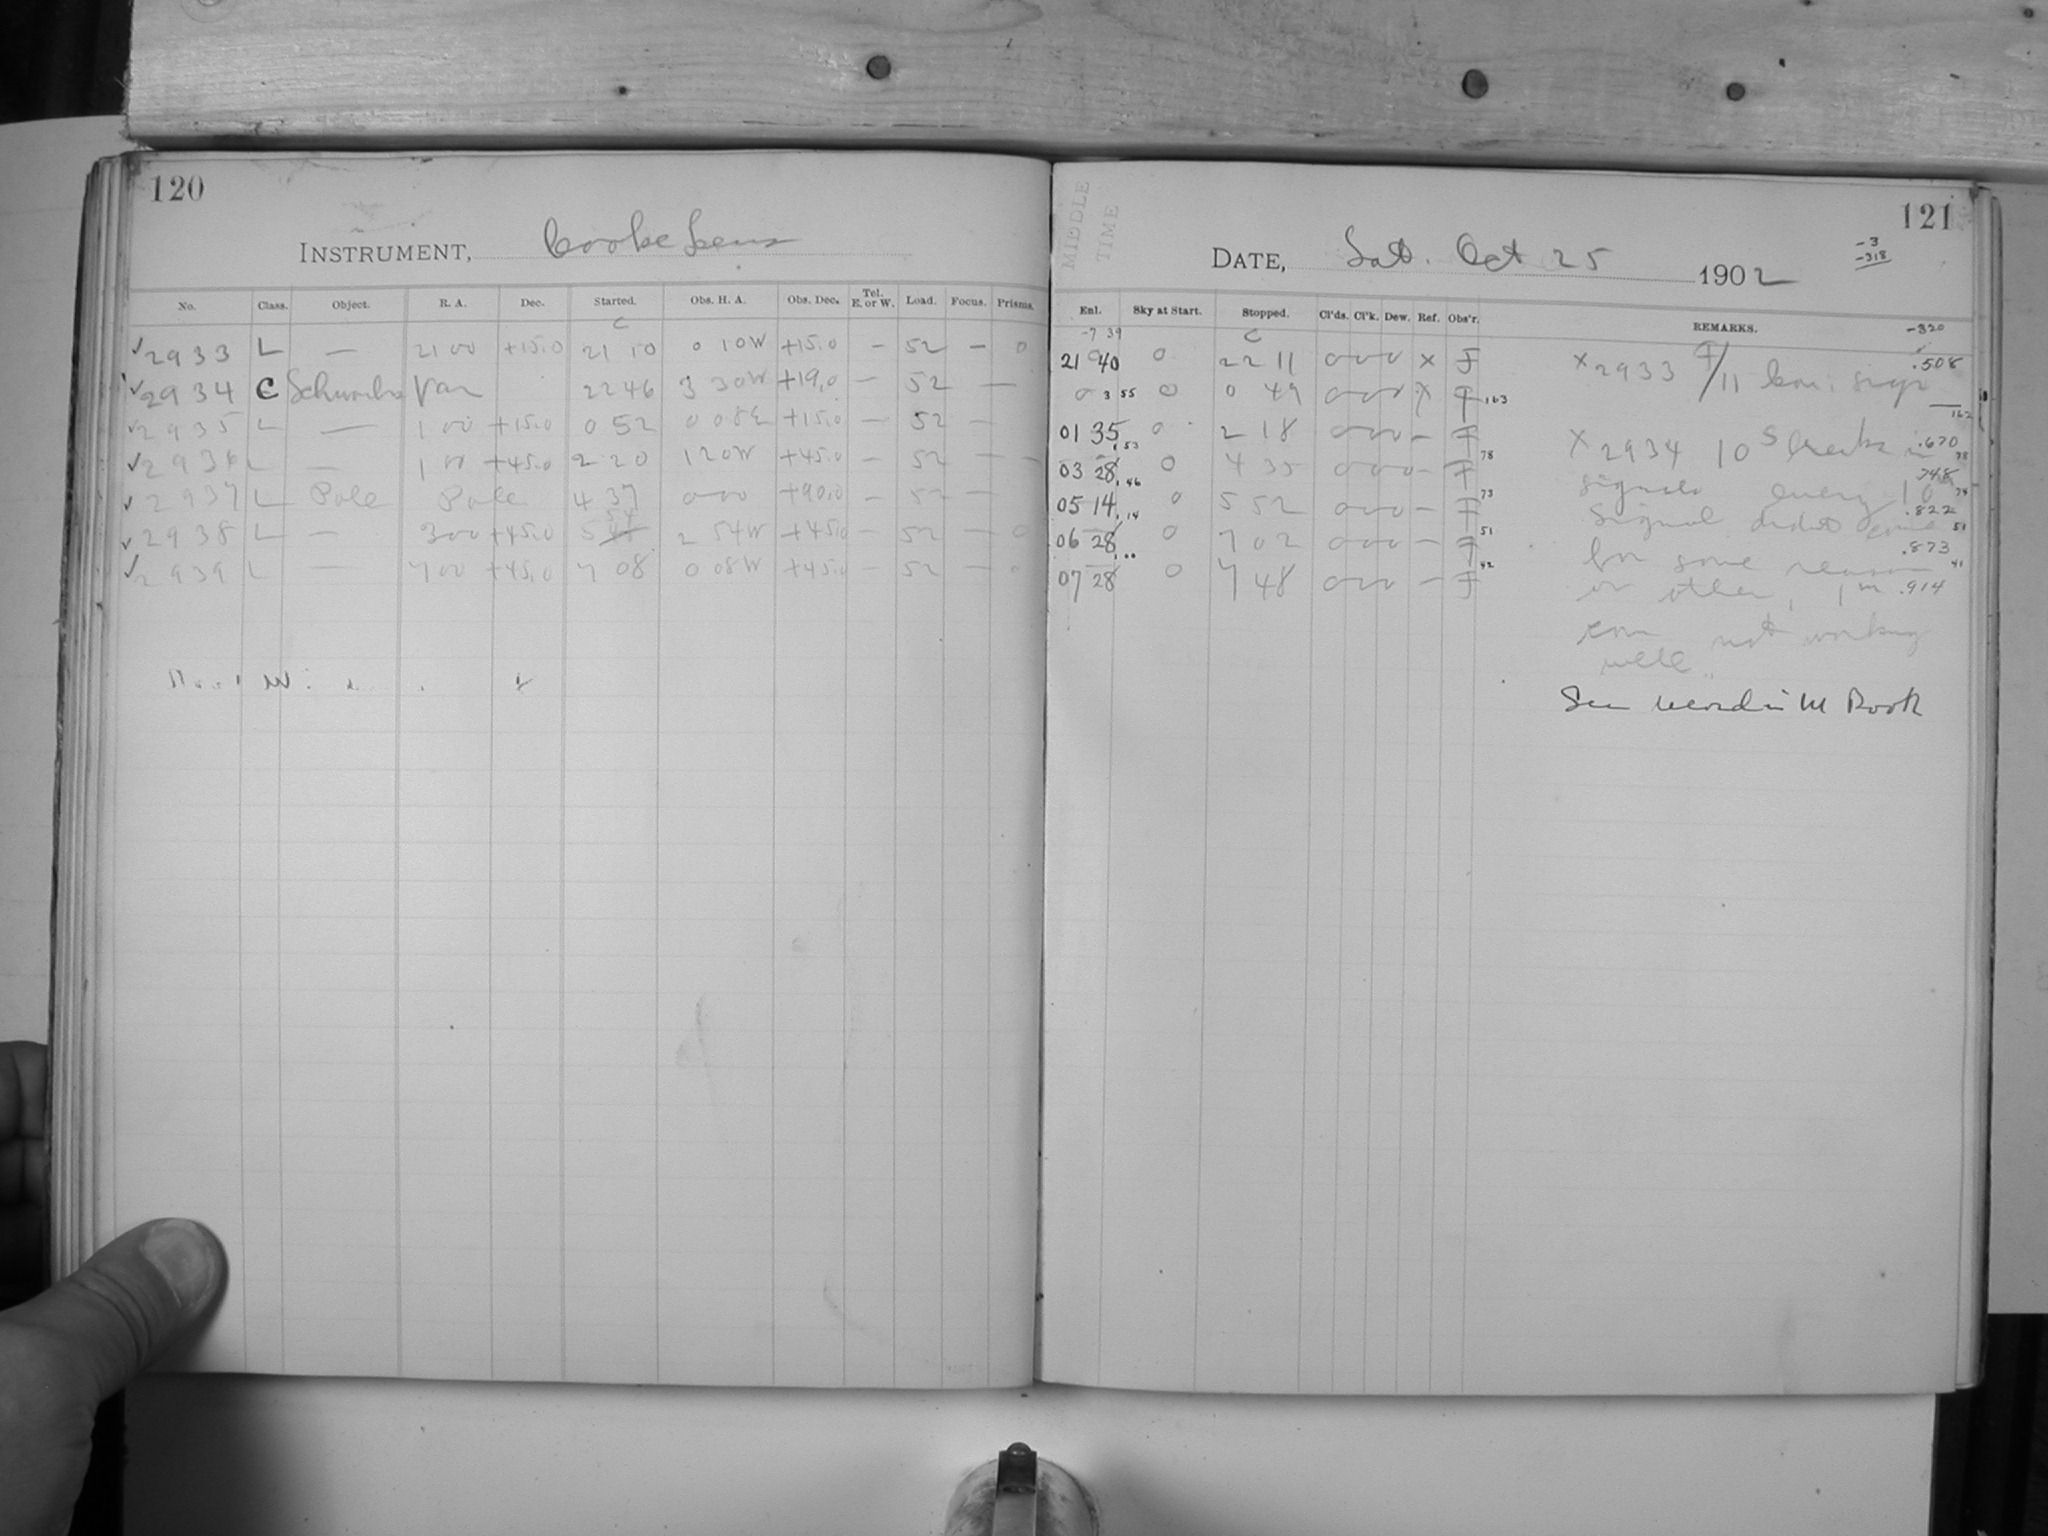 120
INSTRUMENT, Cooke Lens
No. Class. Object. R. A. Dec. Started. Obs. H. A. Obs. Dec. Tel. E. or W. Load. Focus. Prisms.
C
✓2933 L — 21 00 +15.0 21 10 0 10W +15.0 — 52 — 0
✓2934 C Var 22 46 3 30W +19.0 — 52 —
✓2935 L — 1 00 +15.0 0 52 0 08E +15.0 — 52 —
✓2936 L — 1 00 +45.0 2 20 1 20W +45.0 — 52 — —
✓2937 L Pole Pole 4 37 0 00 +90.0 — 52 —
54
✓2938 L — 3 00 +45.0 5 2 54W +45.0 — 52 — 0
✓2939 L — 7 00 +45.0 7 08 0 08W +45.0 — 52 — 0
121
MIDDLE
TIME
DATE, Sat. Oct 25 1902
-3
-318
Enl. Sky at Start. Stopped. Cl'ds. Cl'k. Dew. Ref. Obs'r. REMARKS.
-7 39 C -320
21 40 0 22 11 0 0 0 X F X 2933 .508
0 3 55 0 0 49 0 0 0 X F 163
01 35 .53 0 2 18 0 0 0 — F 162
03 28 .46 0 4 35 0 0 0 — F 78 X 2934 10s breaks in .670 78
05 14 .14 0 5 52 0 0 0 — F 73 signals every 10 .748 74
06 28 .00 0 7 02 0 0 0 — F 51 Signal didnt come .822 51
07 28 0 7 48 0 0 0 — F 42 for some reason .873 41
or other, 1m .914
com not working
well
See record in M Book